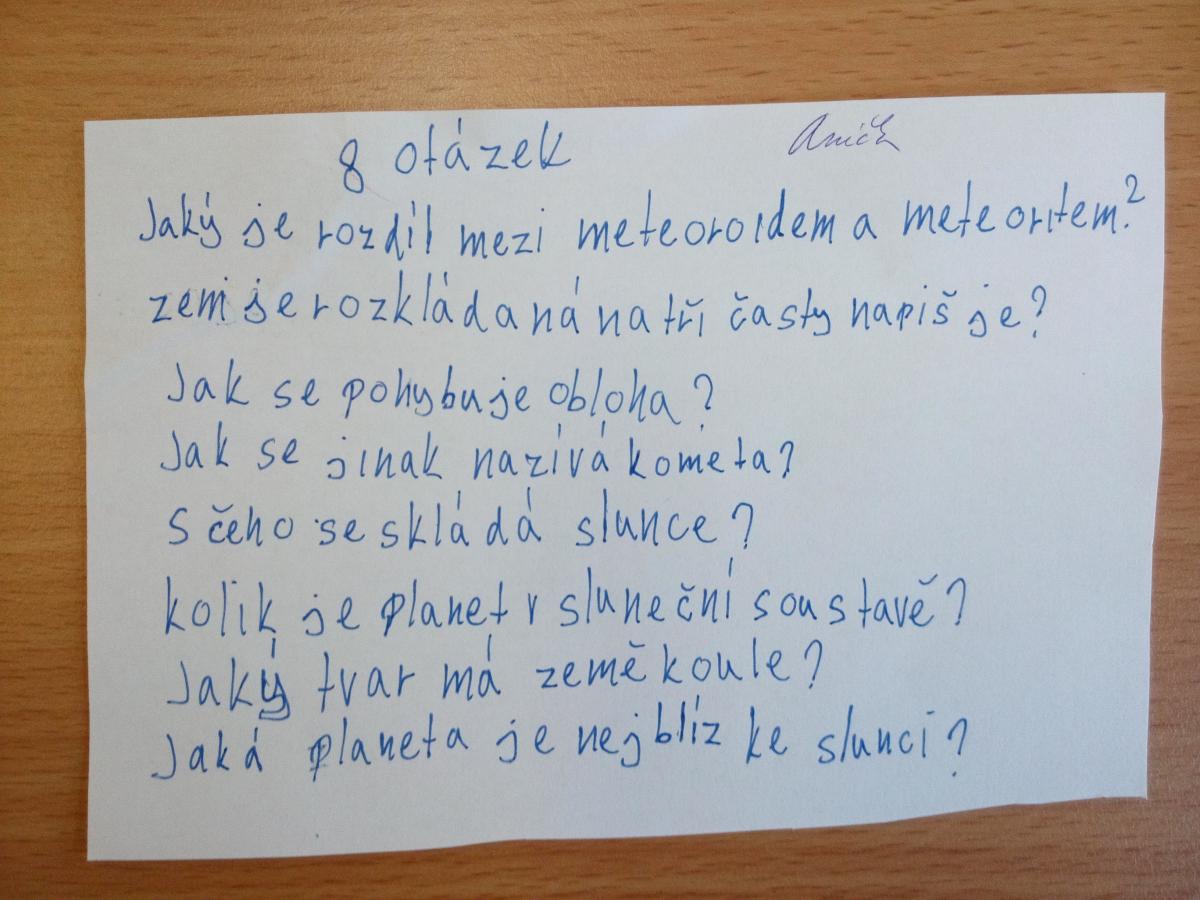 8 otázek
Jaký je rozdíl mezi meteoroidem a meteoritem?
zem je rozkládaná na tří částy napiš je?
Jak se pohybuje obloha?
Jak se jinak nazívá kometa?
s čeho se skládá slunce?
kolik je planet v sluneční soustavě?
Jaký tvar má země koule?
Jaká planeta je nejblíz ke slunci?